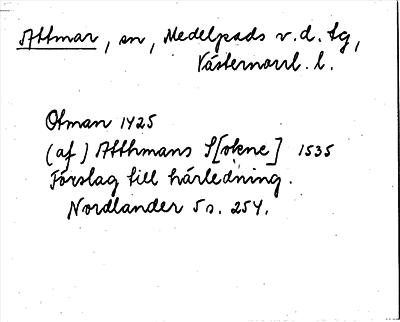 Attmar, sn, Medelpads v. d. tg,
Västernorrl. l.
Otman 1425
(af) Atthmans S[okne] 1535
Förslag till härledning.
Nordlander 5 s. 254.